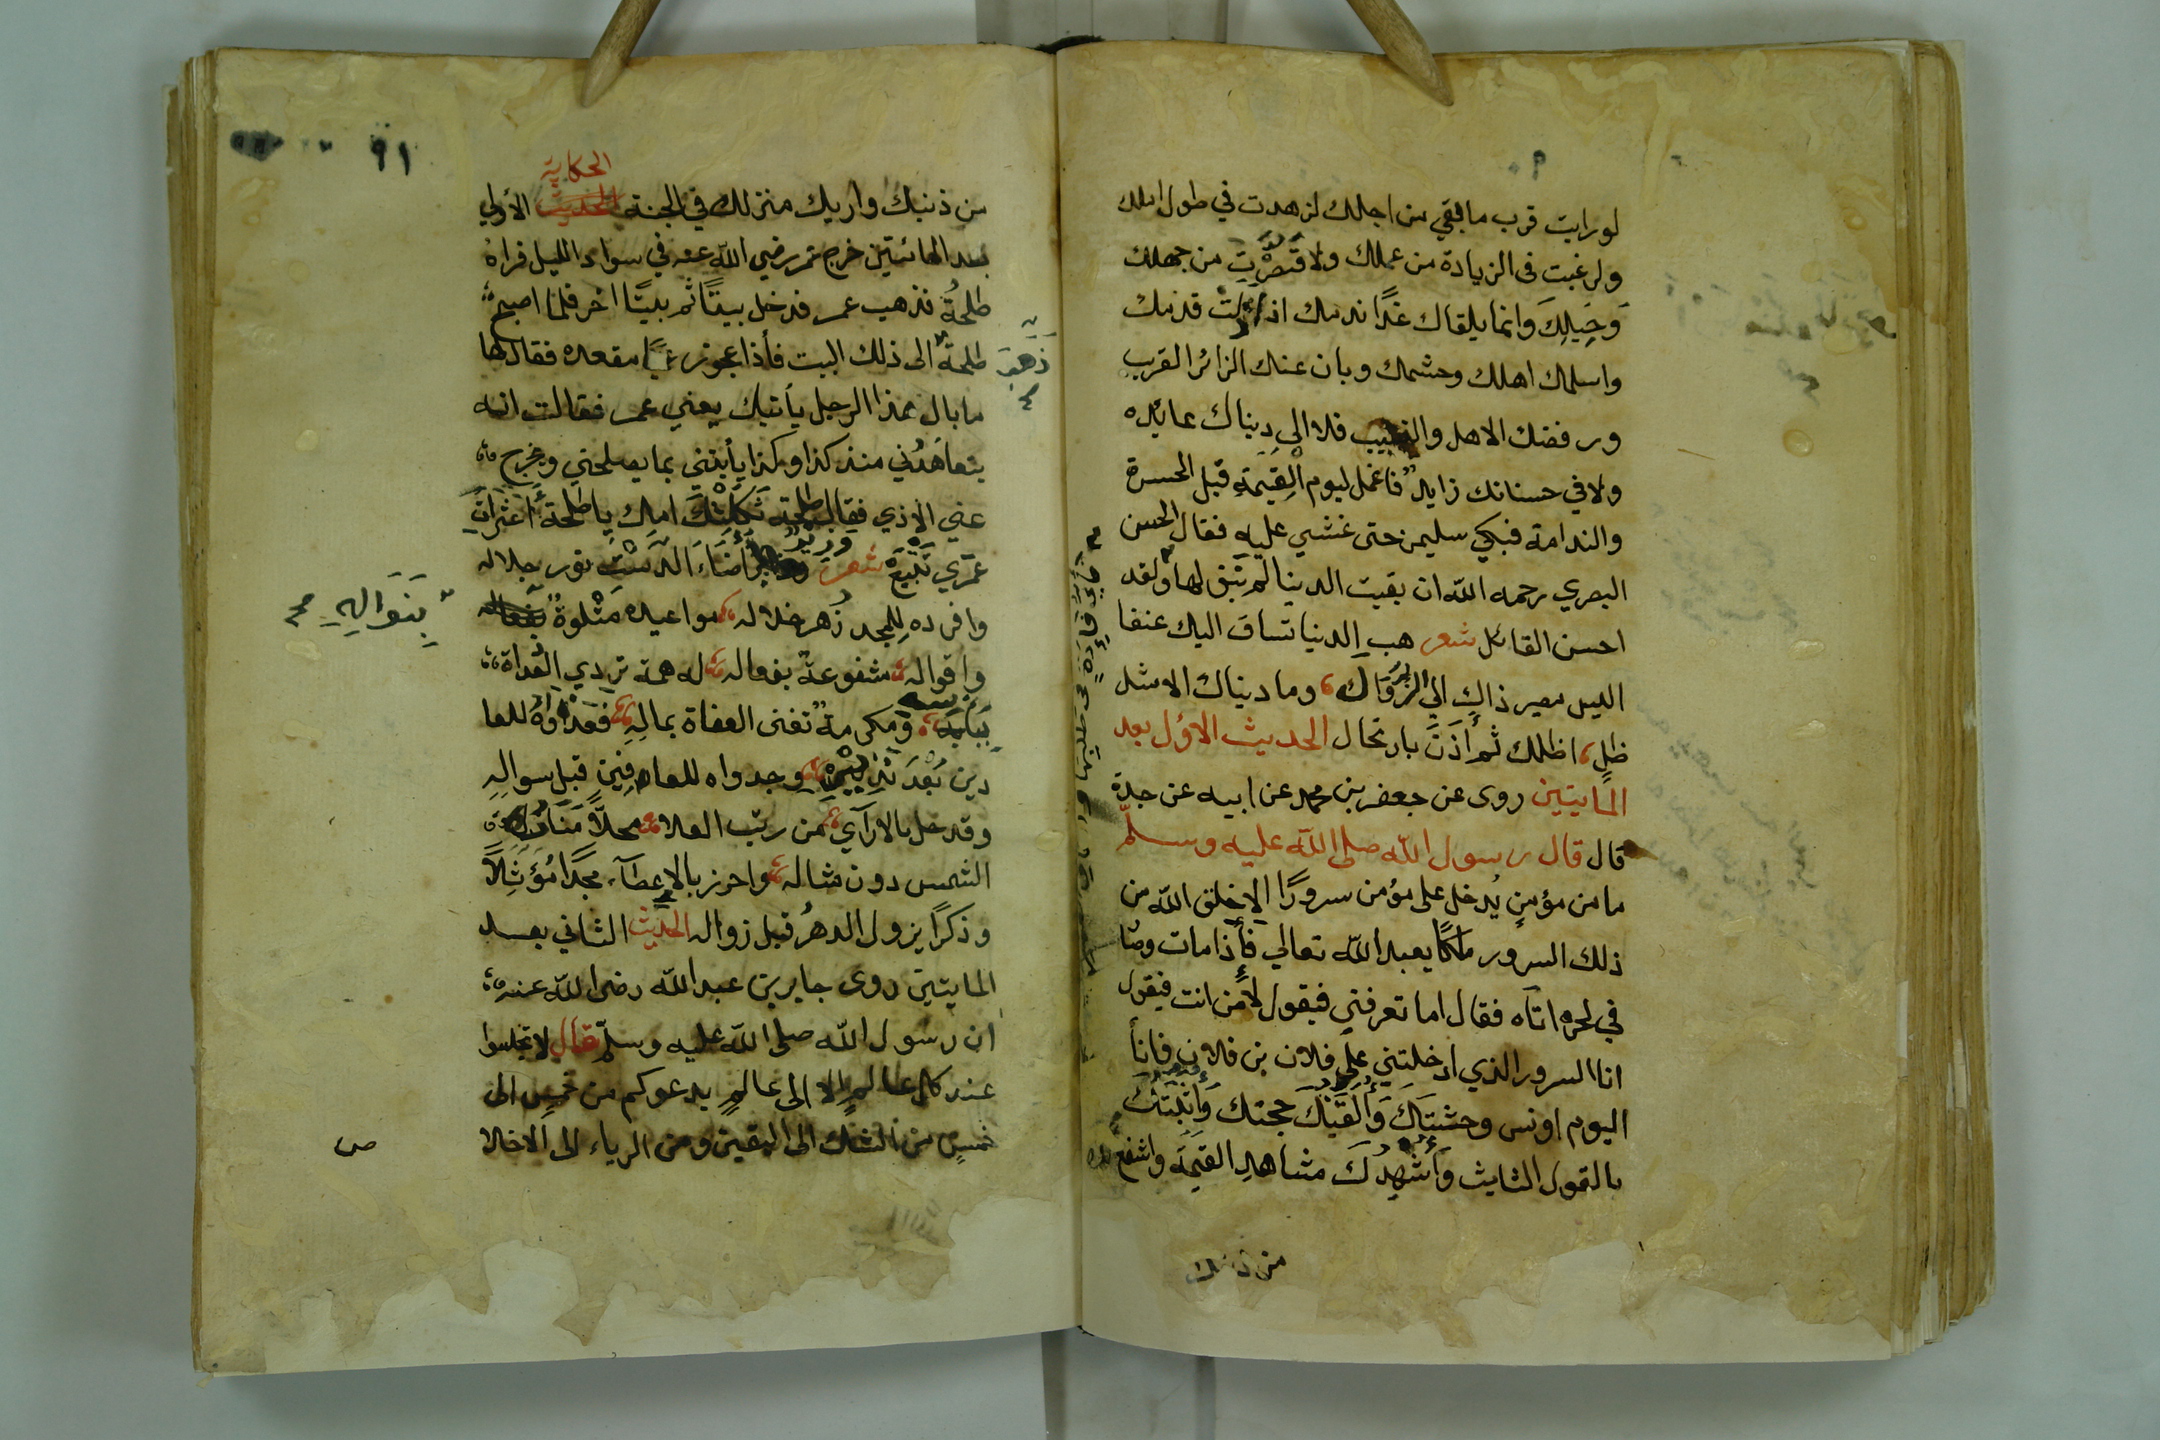 ٩٠
لو رايت قرب ما بقي من اجلك لزهدت في طول املك
ولرغبت فى الزيادة من عملك ولا قَصَّرْتَ من جهلك
وَحِيلِكَ وانما يلقاك غدًا ندمك اذا زلت قدمك
واسلمك اهلك وحشمك وبان عنك الزائر القرب
ورفضك الاهل والنسيب فلا الي دنياك عائده
ولا في حسناتك زايد فاعمل ليوم الْقِيٰمَةِ قبل الحسرة
والندامة فبكي سليمن حتى غشي عليه فقال الحسن
البصري رحمه الله ان بقيت الدينا لم تَبْق لها ولقد
احسن القائل شعر هب الدنيا تساق اليك عنفا
اليس مصير ذاك الي الزوال وما دنياك الا مثل
ظل اظلك ثم أَذَنَ بارتحال الحديث الاول بعد
المايتين روى عن جعفر بن محمد عن ابيه عن جدة
قال قال رسول الله صلى الله عليه وسلم
ما من مؤمن يُدخل على مؤمن سرورًا الا خلق الله من
ذلك السرور ملكًا يعبد الله تعالي فأذا مات وصار
في لحده اتاه فقال اما تعرفني فيقول لأمن انت فيقول
انا السرور الذي ادخلتني على فلان بن فلان فانأ
اليوم اونس وحشتك وَأُلَقِّنُكَ حجتك وَأُثَبِّتُكَ
بالقول الثابث وَأُشْهِدُكَ مشاهد القيٰمة واشفع لك
من ذنبك
٩١
الحكاية
من ذنبك واريك منزلك في الجنة الحديث الأولي
بعد المائتين خرج عمر رضي الله عنه في سواد الليل فراه
طلحةُ فذهب عمر فدخل بيتًا ثم بيتًا اخر فلما اصبح
ذَهَبَ
طلحة الى ذلك البيت فأذا عجوز عميا مقعده فقال لها
ما بال هذا الرجل يأتيك يعني عمر فقالت انه
يتعاهدُني منذ كذا وكذا يأتيني بما يصلحني ويخرج
عني الاذي فقال طلحة ثَكَلَتْكَ امك يا طلحة أعثرات
عمري تَتَّبِعَ شعر وزير أضَاءَ الدَسْتَ نور جلاله
وافرده لِلمجد زُهر خلاله مواعيده مَتْلُوةٌ بفعاله
بِنَوَالِهِ
واقواله مشفوعةٌ بفعاله له همة تردي العُداة
ومكرمة تغنى العفاة بمالِهِ فعدْواهُ للعا
دين بَعْدَ وجدواه للعارفين قبل سوالِهِ
وقد حل بالارآي من رتب العلا محلاً مَنَار
الشمس دون مثاله واحرز بالاعطآء مجدًا مُؤَثَّلاً
وذكرًا يزول الدهرُ قبل زواله الحديث الثاني بعد
المايتين روى جابر بن عبد الله رضى الله عنه
ان رسول الله صلى الله عليه وسلم قال لا تجلسوا
عند كل عالمٍ الا الى عالمٍ يدعوكم من خمسٍ الى
خمسٍ من الشك الى اليقين ومن الرياء الى الاخلا
ص